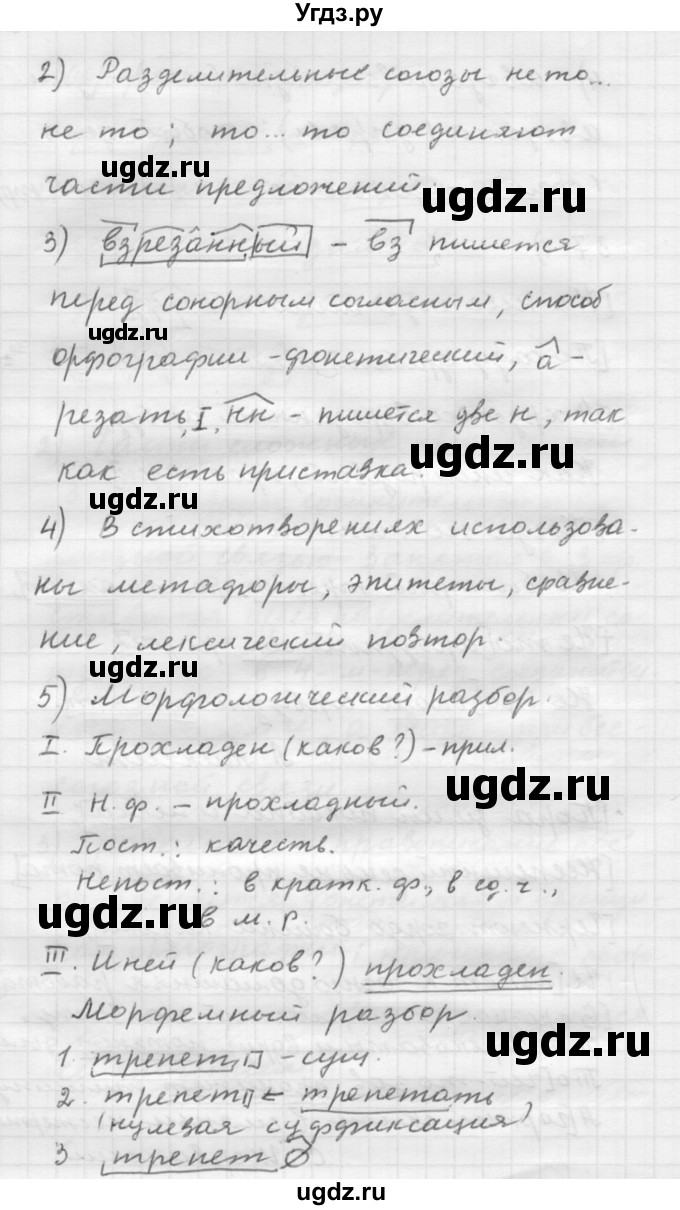 Угдз.ру
2) Разделительные союзы не то...
не то; то... то соединяют
ugdz.ru
ugdz.ru
части предложений.
3) взрезанный - вз пишется
перед сонорным согласным, способ
ugdz.ru
орфографии - фонетический, а -
резать, I, нн - пишется две н, так
ugdz.ru
как есть приставка.
ugdz.ru
4) В стихотворениях использова-
ны метафоры, эпитеты, сравне-
ние, лексический повтор.
ugdz.ru
5) Морфологический разбор.
I. Прохладен (каков?) - прил.
ugdz.ru
II Н. ф. - прохладный.
Пост.: качеств.
Непост.: в кратк. ф., в ед. ч.,
ugdz.ru
в м. р.
III. Иней (каков?) прохладен.
Морфемный разбор.
ugdz.ru
1. трепет - сущ.
2. трепет ← трепетать
(нулевая суффиксация)
ugdz.ru
3 трепет ∅
ugdz.ru